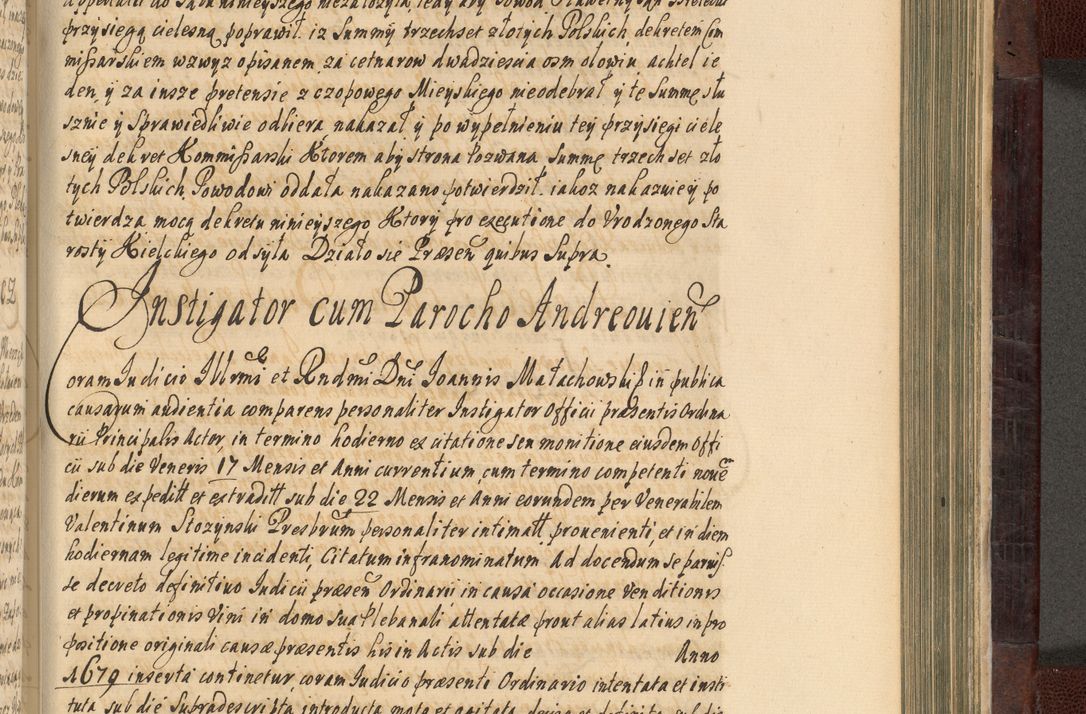 przysięgą cielesną poprawił. iz Summy trzechset złotych Polskich dekretem Com
mißarskiem wzwyz opisanem, za cetnarow dwadziescia osm ołowiu achtel ie
den, ÿ za insze pretensie z czopowego Mieyskiego nieodebrał ÿ tę Summę słu
sznie ÿ Sprawiedliwie odbiera, nakazał ÿ po wypełnieniu tey przysięgi ciele
sney dekret Kommißarski Ktorem aby strona Pozwana Summę trzech set zło
tych Polskich, Powodowi oddała nakazano potwierdził. iakoz nakazuie ÿ po
twierdza mocą dekretu ninieyszego Ktory pro executione do Vrodzonego Sta
rosty Kielckiego odsyła Działo się Præsen quibus Supra.
Instigator cum Parocho Andreouien
Coram Judicio Illrmi et Rndmi Dni Joannis Małachowski ß in publica
causarum audientia comparens personaliter Instigator Officii præsentis Ordina
rii Principalis Actor, in termino hodierno ex citatione seu monitione eiusdem Offi
cii sub die Veneris 17 Mensis et Anni currentium, cum termino competenti noue
dierum expeditt et extraditt sub die 22 Mensis et Anni eorundem per Venerabilem
Valentinum Stozynski Presbrum personaliter intimatt, prouenienti, et in diem
hodiernam legitime incidenti, Citatum infranominatum Ad docendum se paruiß.
se decreto definitiuo Iudicii præsen Ordinarii in causa occasione Venditionis
et propinationis Vini in domo sua Plebanali attentatæ prout alias latius in pro
positione originali causæ præsentis his in Actis sub die Anno
1679 inserta continetur, coram Iudicio præsenti Ordinario intentata et insti
tuta sub die Subradescripta introducta mota et agitata